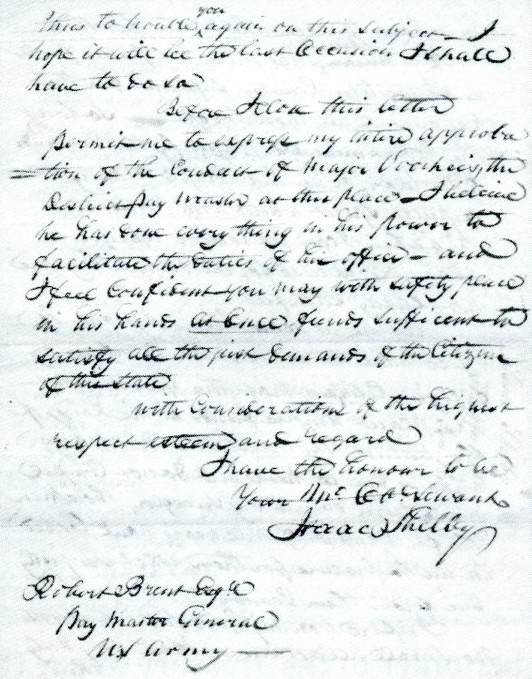 you
thus to trouble again on this subject — I
hope it will be the last Occasion I shall
have to do so
Before I close this letter
permit me to express my intire approba
=tion of the Conduct of Major Voorheis, the
District Pay Master at this place — I believe
he has done every thing in his power to
facilitate the duties of his office — and
I feel Confident you may with safety place
in his hands at Once funds sufficent to
satisfy all the just demands of the Citizens
of this State
with Considerations of the highest
respect esteem and regard
I have the honour to be
Your Mo. Ob. Servant
Isaac Shelby
Robert Brent Esqe
Pay Master General
US Army —